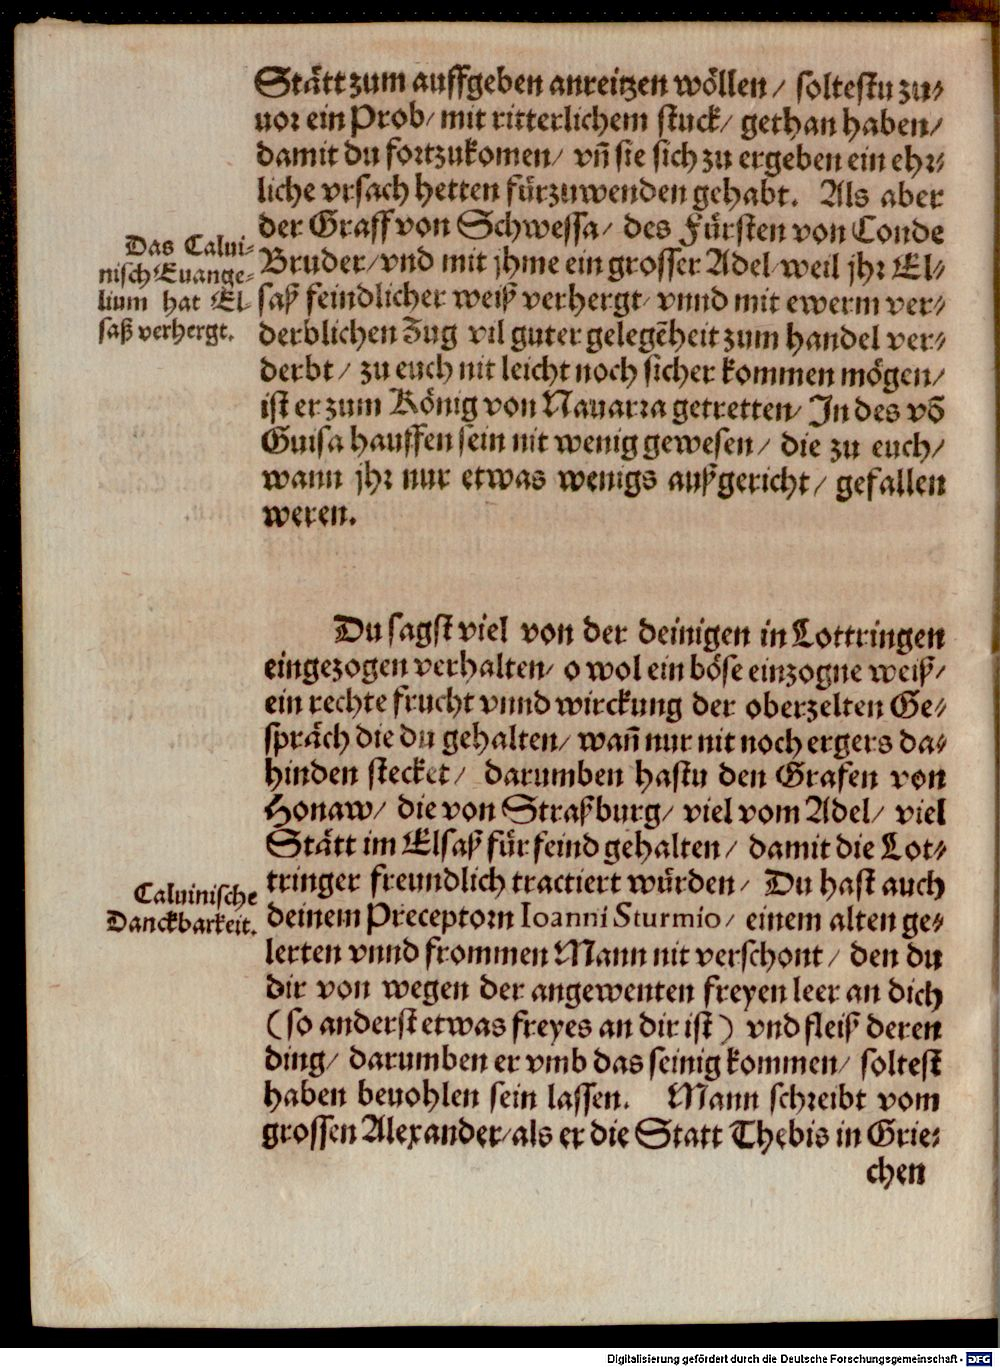 Stått zum auffgeben anreitzen wöllen / soltestu zu⸗
uor ein Prob / mit ritterlichem stuck / gethan haben /
damit du fortzukomen / vñ sie sich zu ergeben ein ehr⸗
liche vrsach hetten fürzuwenden gehabt. Als aber
der Graff von Schwessa / des Fürsten von Conde
Bruder / vnd mit jhme ein grosser Adel / weil jhr El⸗
saß feindlicher weiß verhergt / vnnd mit ewerm ver⸗
derblichen Zug vil guter gelegẽheit zum handel ver⸗
derbt / zu euch nit leicht noch sicher kommen mögen /
ist er zum König von Nauarra getretten / In des võ
Guisa hauffen sein nit wenig gewesen / die zu euch /
wann jhr nur etwas wenigs außgericht / gefallen
weren.
Das Calui⸗
nisch Euange⸗
lium hat El⸗
saß verhergt.
Du sagst viel von der deinigen in Lottringen
eingezogen verhalten / o wol ein böse einzogne weiß /
ein rechte frucht vnnd wirckung der oberzelten Ge⸗
språch die du gehalten / wañ nur nit noch ergers da⸗
hinden stecket / darumben hastu den Grafen von
Honaw / die von Straßburg / viel vom Adel / viel
Stått im Elsaß für feind gehalten / damit die Lot⸗
tringer freundlich tractiert würden / Du hast auch
deinem Preceptorn Ioanni Sturmio / einem alten ge⸗
lerten vnnd frommen Mann nit verschont / den du
dir von wegen der angewenten freyen leer an dich
( so anderst etwas freyes an dir ist ) vnd fleiß deren
ding / darumben er vmb das seinig kommen / soltest
haben beuohlen sein lassen. Mann schreibt vom
grossen Alexander / als er die Statt Thebis in Grie⸗
chen
Caluinische
Danckbarkeit.
Digitalisierung gefördert durch die Deutsche Forschungsgemeinschaft - DFG